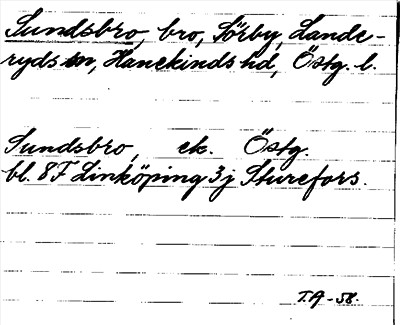 Sundsbro, bro, Sörby, Lande-
ryds sn, Hanekinds hd, Östg. l.
Sundsbro, ek. Östg.
bl. 8F Linköping 3j Sturefors.
T.A -58.